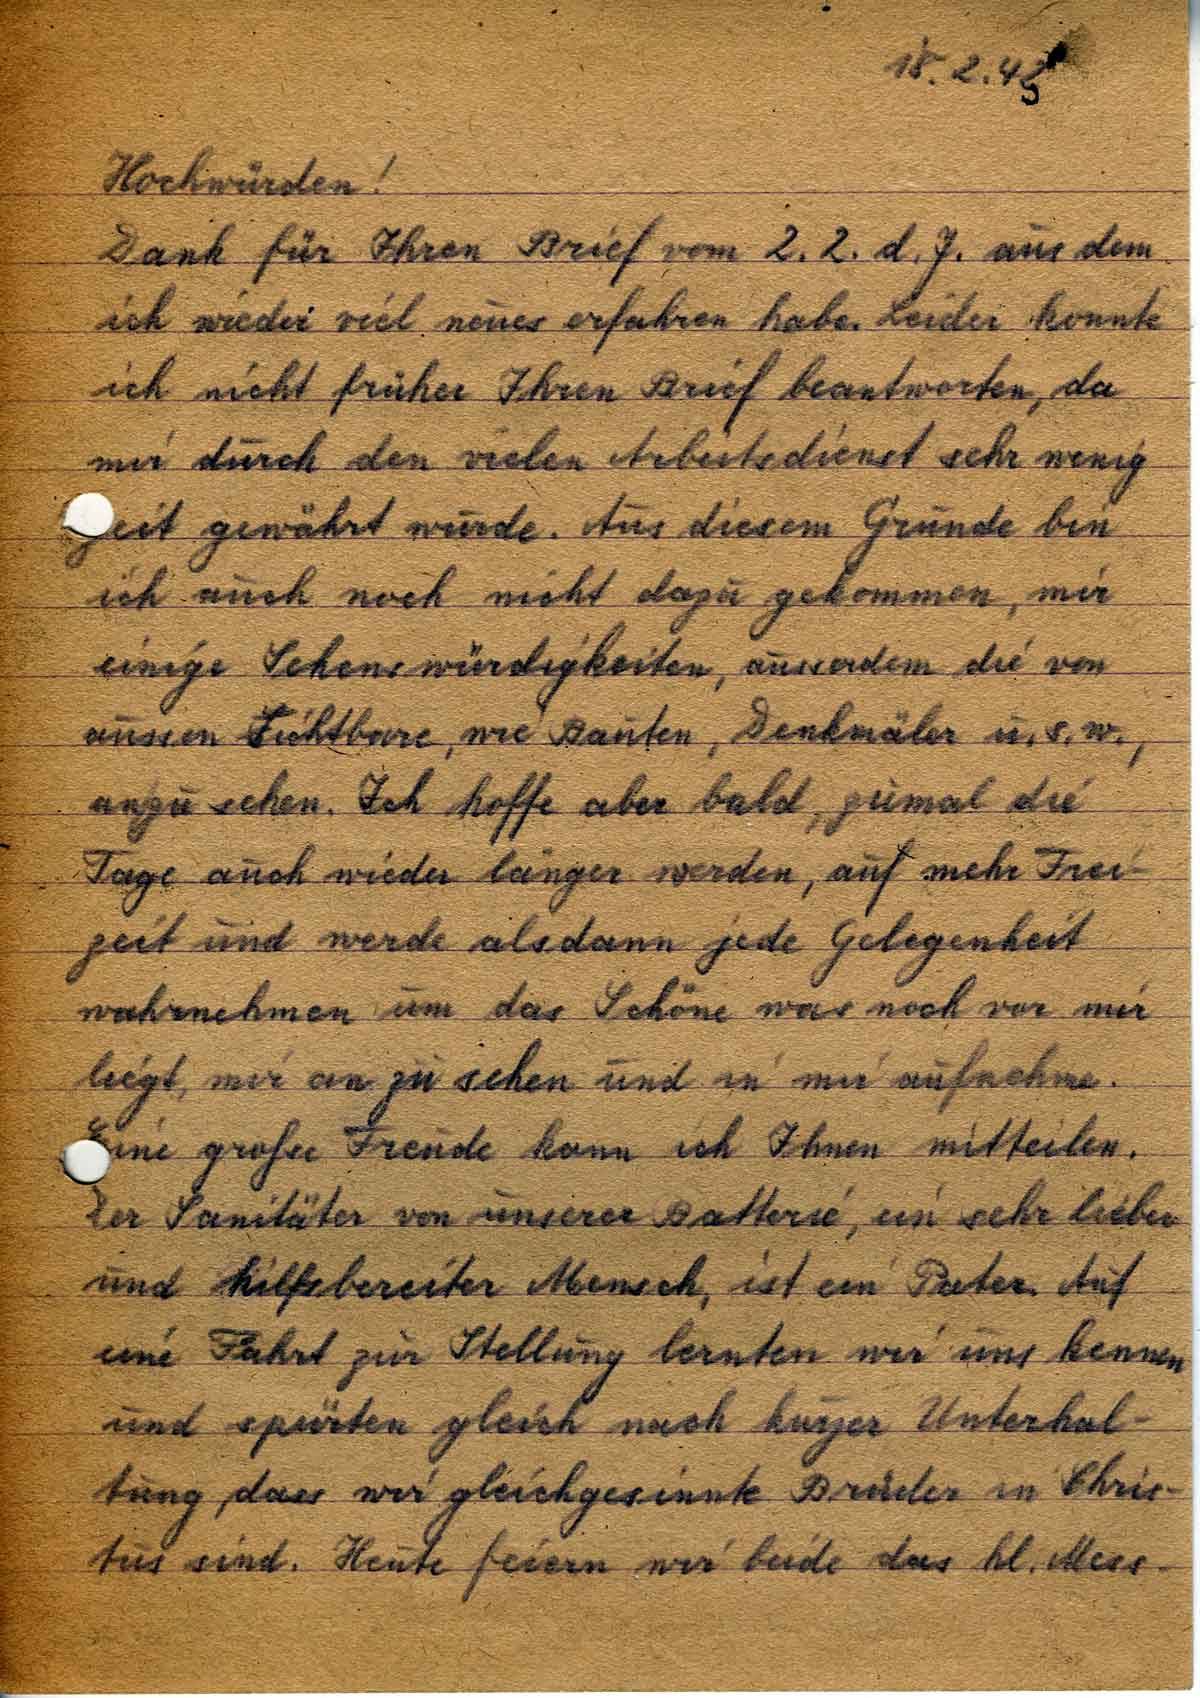 18.2.43
Hochwürden!
Dank für Ihren Brief vom 2. 2. d. J. aus dem
ich wieder viel neues erfahren habe. Leider konnte
ich nicht früher Ihren Brief beantworten, da
mir durch den vielen Arbeitsdienst sehr wenig
Zeit gewährt wurde. Aus diesem Grunde bin
ich auch noch nicht dazu gekommen, mir
einige Sehenswürdigkeiten, ausserdem die von
aussen Sichtbare, wie Bauten, Denkmäler u.s.w.,
anzusehen. Ich hoffe aber bald, zumal die
Tage auch wieder länger werden, auf mehr Frei-
zeit und werde alsdann jede Gelegenheit
wahrnehmen um das Schöne was noch vor mir
liegt, mir an zu sehen und in mir aufnehme.
Eine große Freude kann ich Ihnen mitteilen.
Der Sanitäter von unserer Batterie, ein sehr lieber
und hilfsbereiter Mensch, ist ein Pater. Auf
eine Fahrt zur Stellung lernten wir uns kennen
und spürten gleich nach kurzer Unterhal-
tung, dass wir gleichgesinnte Brüder in Chris-
tus sind. Heute feiern wir beide das hl. Mess-